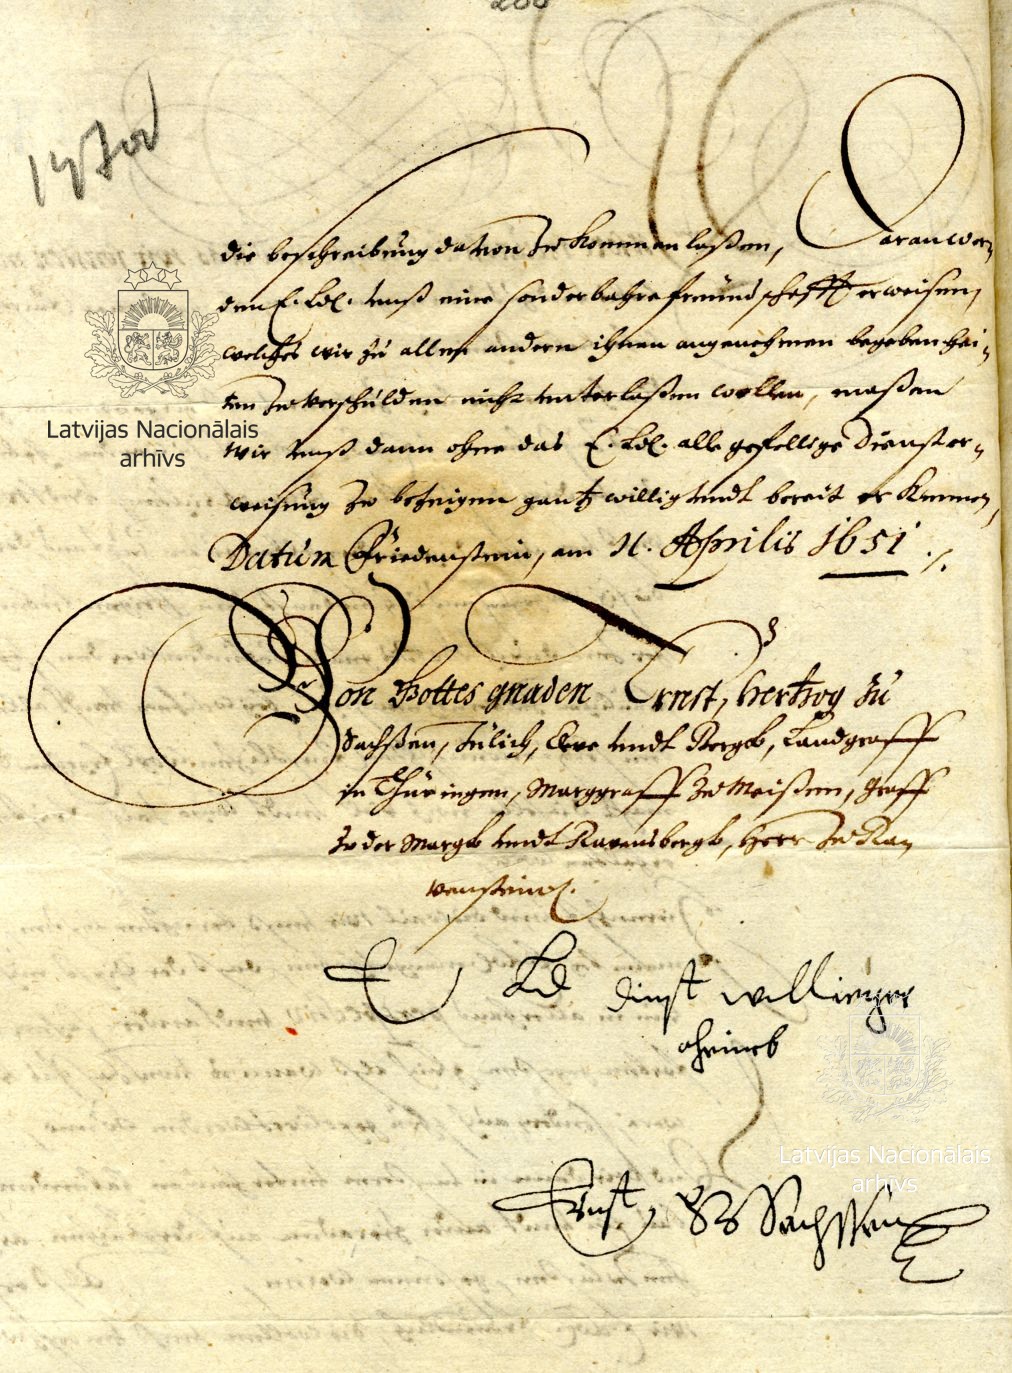 die beschreibung davon zu kommen laßen, Daran wer-
den E. Ldl. unß eine sonderbahre freundschafft erweisen,
welches wir zu allen andern ihnen angenehmen begebenhei-
ten zu verschulden nicht unterlaßen wollen, maßen
Wir unß dann ohne das E. Ldl. alle gefellige Dienster-
weisung zu bezeigen gantz willig undt bereit erkennen,
Datum Friedenstein, am 11. Aprilis 1651 ./.
Von Gottes gnaden Ernst, Hertzog zu
Sachßen, Jülich, Cleve undt Bergk, Landgraff
in Thüringen, Marggraff zu Meißen, Graff
zu der Margk undt Ravensbergk, Herr zu Ra-
venstein
E Ld dinst willieger
oheimb
Ernst HzSachssen
Latvijas Nacionālais
arhīvs
Latvijas Nacionālais
arhīvs